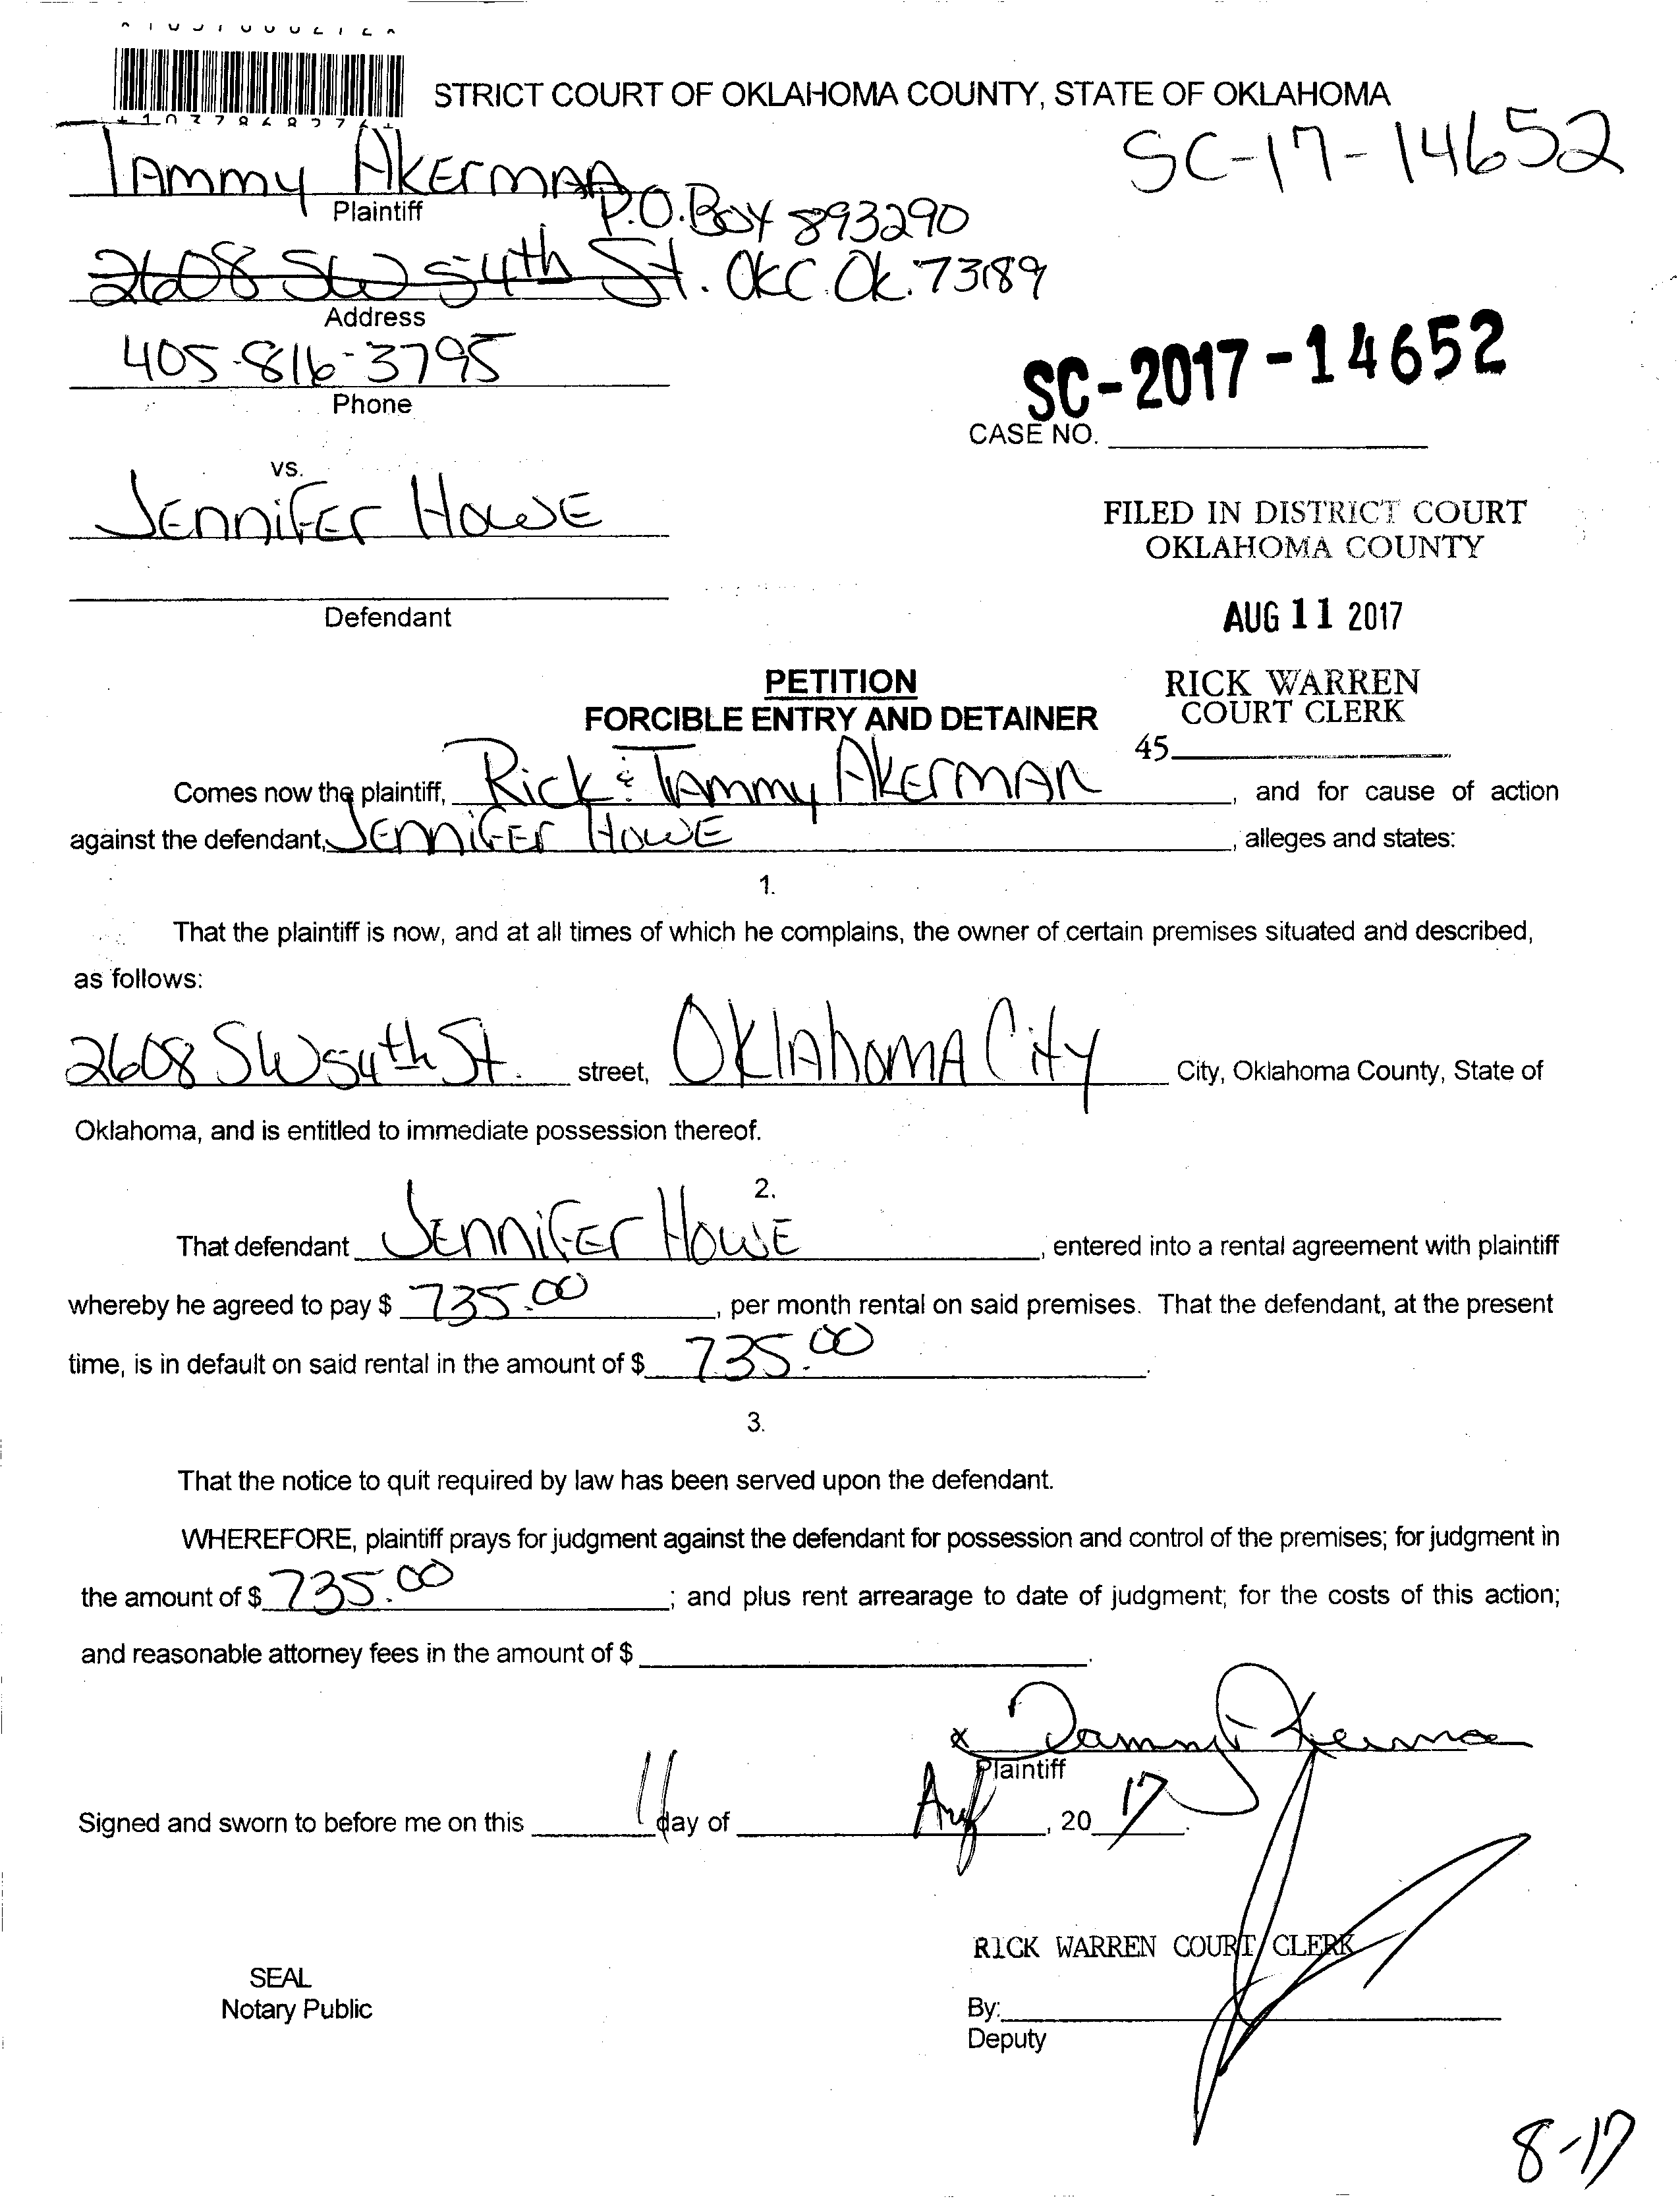 STRICT COURT OF OKLAHOMA COUNTY, STATE OF OKLAHOMA
SC-17-14652
TAMMY AKERMAN
Plaintiff
P.O. Box 893290
2608 SW 54th St. OKC. Ok. 73189
Address
405-816-3795
Phone
SC-2017-14652
CASE NO.
vs.
JENNIFER HOWE
Defendant
FILED IN DISTRICT COURT
OKLAHOMA COUNTY
AUG 11 2017
RICK WARREN
COURT CLERK
45
PETITION
FORCIBLE ENTRY AND DETAINER
Comes now the plaintiff, Rick & TAMMY AKERMAN, and for cause of action
against the defendant, JENNIFER HOWE, alleges and states:
1.
That the plaintiff is now, and at all times of which he complains, the owner of certain premises situated and described,
as follows:
2608 SW 54th St. street, OKlAhOMA City City, Oklahoma County, State of
Oklahoma, and is entitled to immediate possession thereof.
2.
That defendant JENNIFER HOWE, entered into a rental agreement with plaintiff
whereby he agreed to pay $ 735.00, per month rental on said premises. That the defendant, at the present
time, is in default on said rental in the amount of $ 735.00.
3.
That the notice to quit required by law has been served upon the defendant.
WHEREFORE, plaintiff prays for judgment against the defendant for possession and control of the premises; for judgment in
the amount of $ 735.00; and plus rent arrearage to date of judgment; for the costs of this action;
and reasonable attorney fees in the amount of $ .
x Tammy Akerman
Plaintiff
Signed and sworn to before me on this 11 day of Aug, 20 17.
RICK WARREN COURT CLERK
SEAL
Notary Public
By:
Deputy
8-17